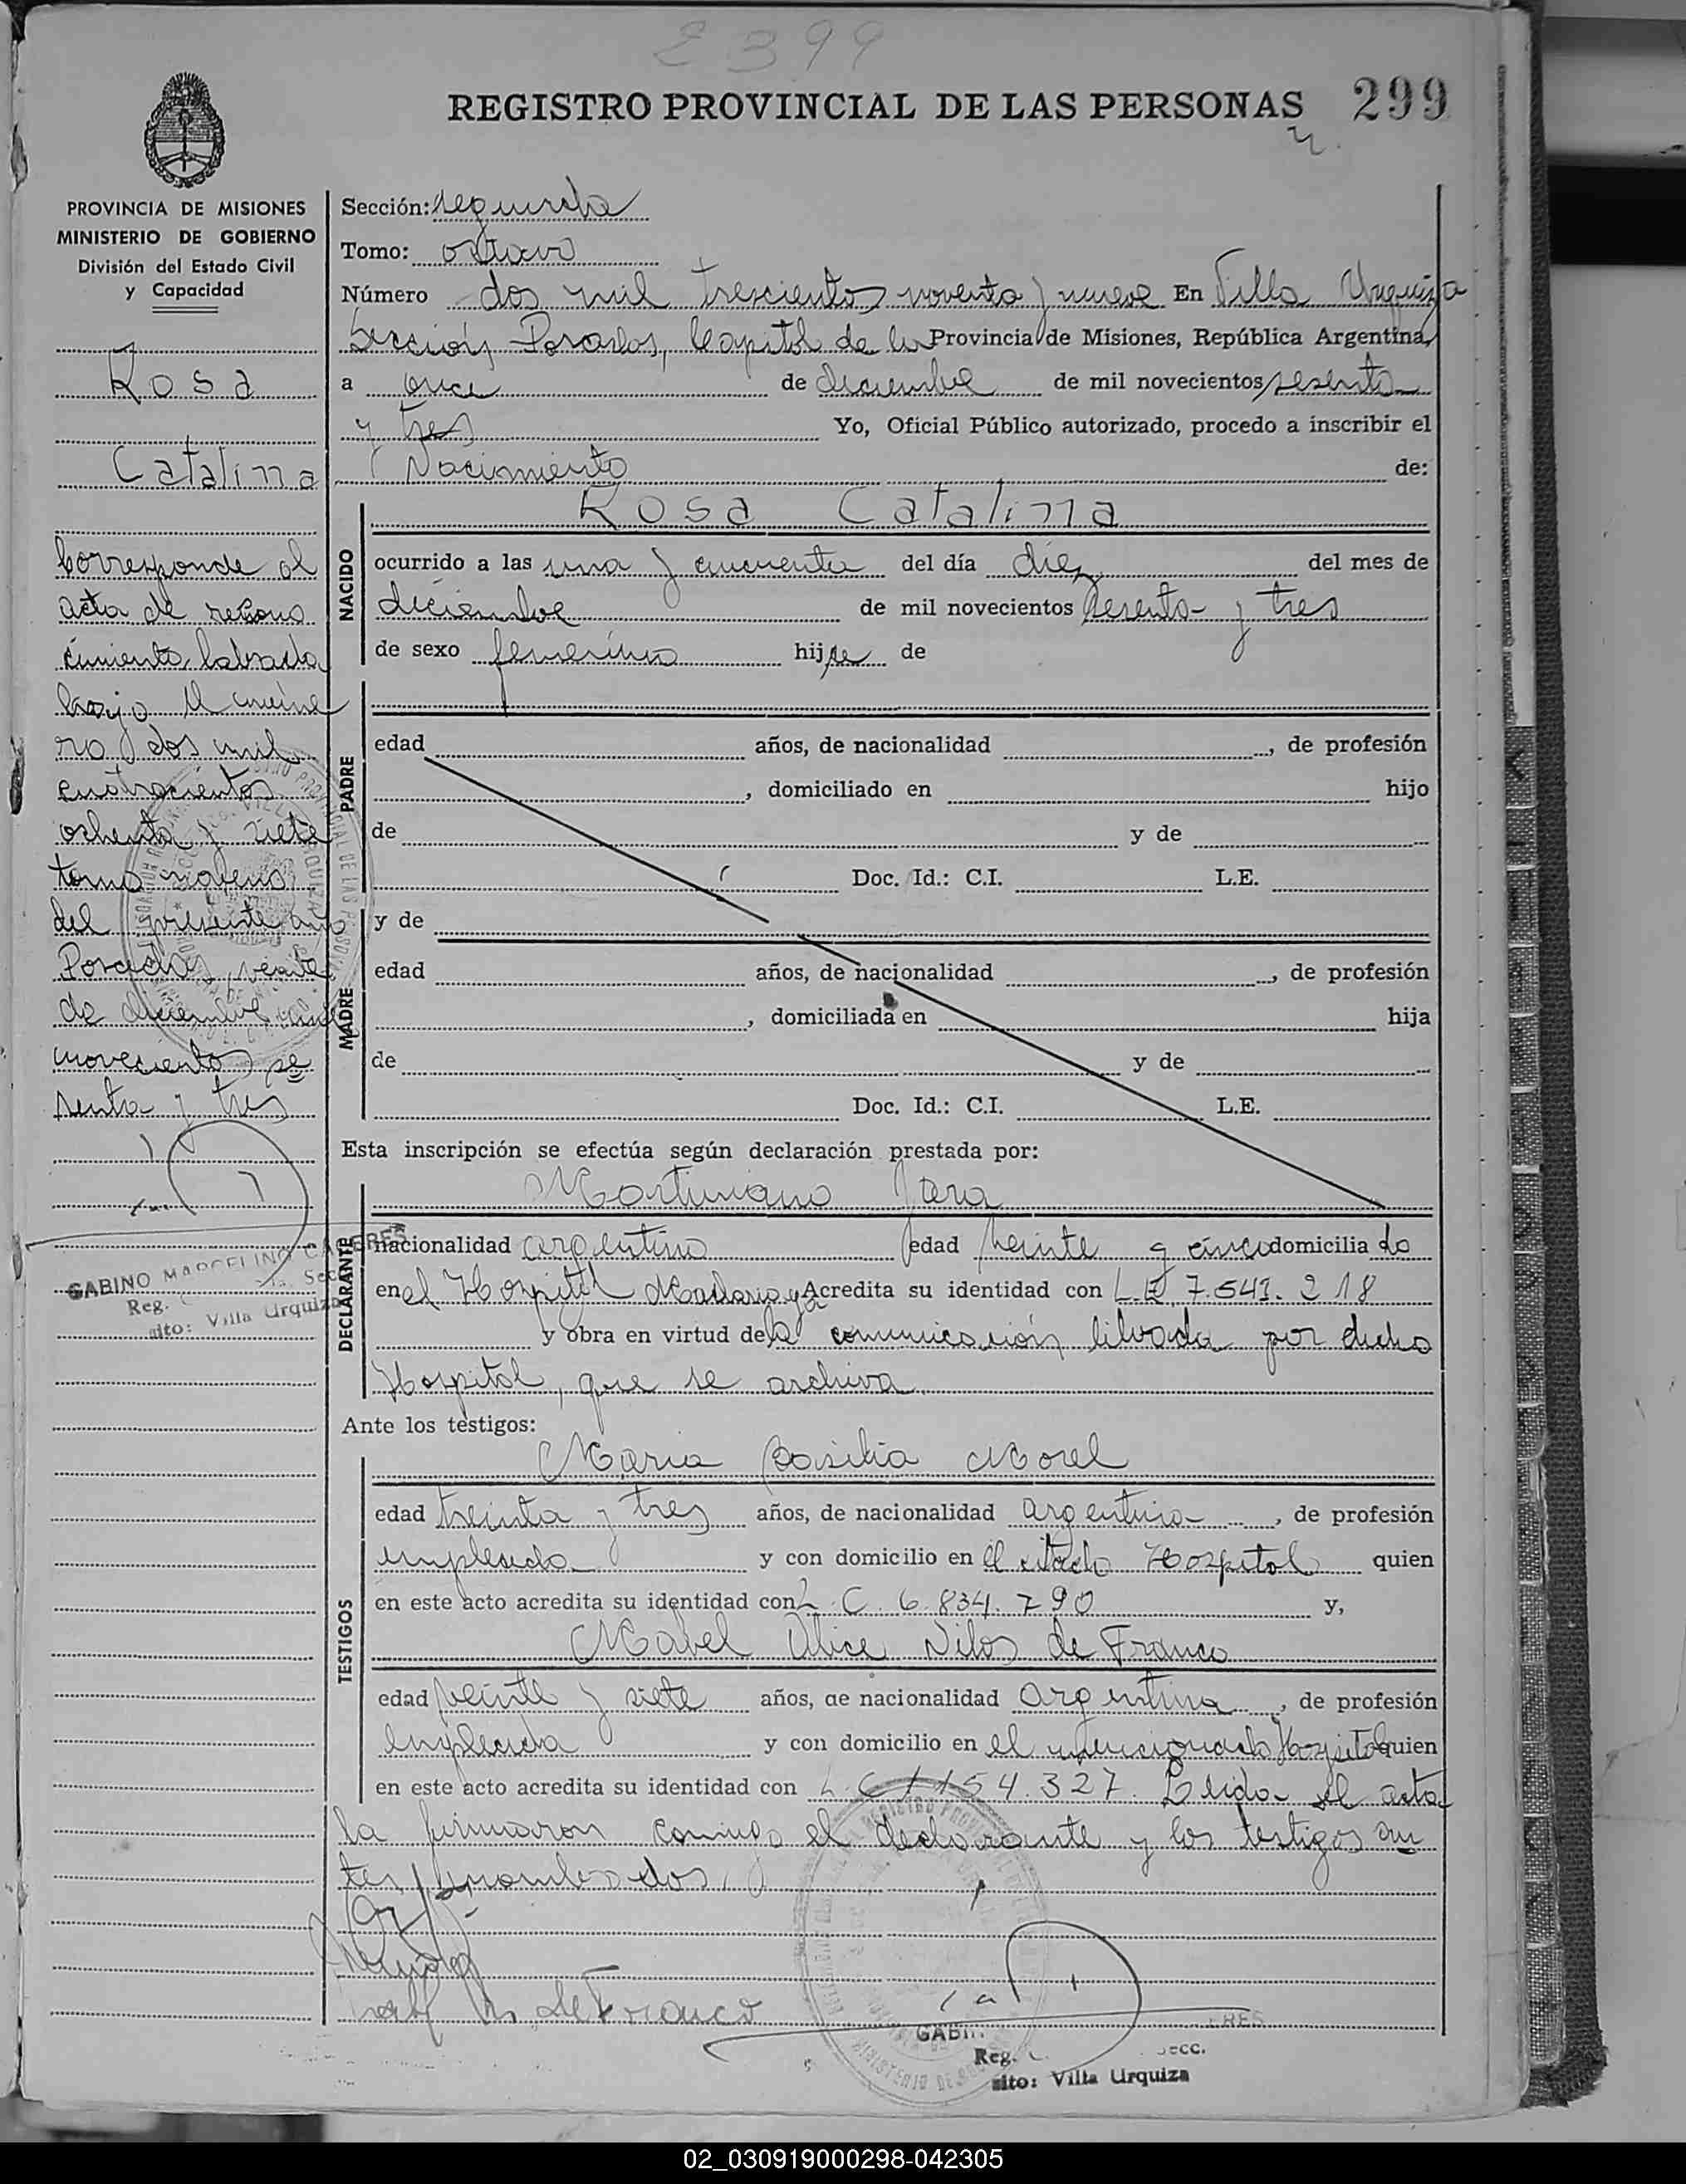 2399
REGISTRO PROVINCIAL DE LAS PERSONAS 299
PROVINCIA DE MISIONES
MINISTERIO DE GOBIERNO
División del Estado Civil
y Capacidad
Rosa
Catalina
Corresponde al
acta de recono
cimiento labrada
bajo el núme
ro dos mil
cuatrocientos
ochenta y siete
tomo noveno
del presente año
Posadas, veinte
de diciembre mil
novecientos se
senta y tres
GABINO MARCELINO CACERES
Reg. Secc.
sito: Villa Urquiza
Sección: segunda
Tomo: octavo
Número dos mil trescientos noventa y nueve En Villa Urquiza
Sección Posadas, Capital de la Provincia de Misiones, República Argentina,
a once de diciembre de mil novecientos sesenta
y tres Yo, Oficial Público autorizado, procedo a inscribir el
Nacimiento de:
NACIDO
Rosa Catalina
ocurrido a las una y cincuenta del día diez del mes de
diciembre de mil novecientos sesenta y tres
de sexo femenino hija de
PADRE
edad años, de nacionalidad , de profesión
, domiciliado en hijo
de y de
Doc. Id.: C.I. L.E.
y de
MADRE
edad años, de nacionalidad , de profesión
, domiciliada en hija
de y de
Doc. Id.: C.I. L.E.
Esta inscripción se efectúa según declaración prestada por:
DECLARANTE
Martiniano Jara
nacionalidad argentino edad veinte y cinco domicilia do
en el Hospital Madariaga Acredita su identidad con L.E 7.541.218
y obra en virtud de la comunicación librada por dicho
Hospital, que se archiva.
Ante los testigos:
TESTIGOS
Maria Basilia Morel
edad treinta y tres años, de nacionalidad argentina , de profesión
empleada y con domicilio en el citado Hospital quien
en este acto acredita su identidad con L.C. 6.834.790 y,
Mabel Alice de Franco
edad veinte y siete años, de nacionalidad argentina , de profesión
empleada y con domicilio en el mencionado Hospital quien
en este acto acredita su identidad con L.C 1154.327. Leida el acta
la firmaron conmigo el declarante y los testigos an
tes nombrados.
de Franco
Reg. Secc.
sito: Villa Urquiza
02_030919000298-042305